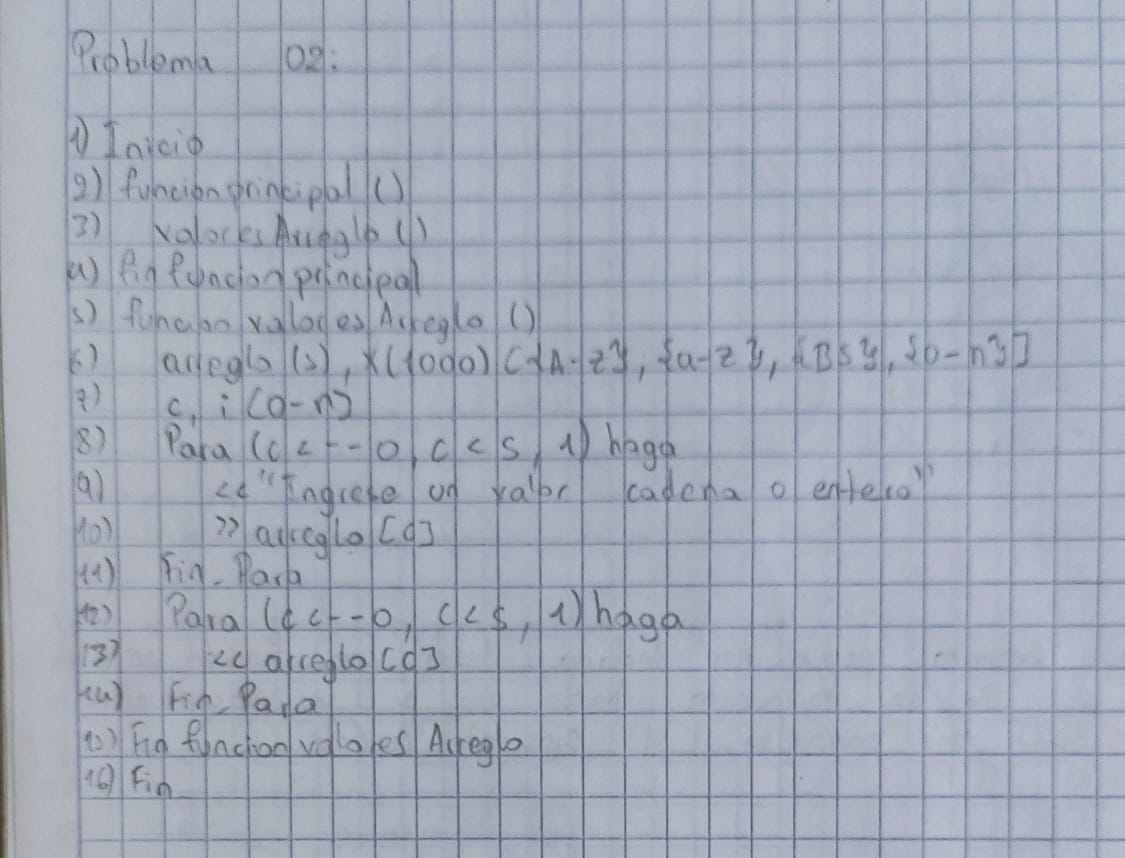 Problema 02:
1) Inicio
2) funcion principal ()
3) valores Arreglo ()
4) fin funcion principal
5) funcion valores Arreglo ()
6) arreglo (5), X(1000) [{A-z}, {a-z}, {BS}, {0-n}]
7) c, i [0-n]
8) Para (c <-- 0, c < 5, 1) haga
9) << "Ingrese un valor cadena o entero"
10) >> arreglo [c]
11) Fin_Para
12) Para (c <-- 0, c < 5, 1) haga
13) << arreglo [c]
14) Fin_Para
15) Fin funcion valores Arreglo
16) Fin